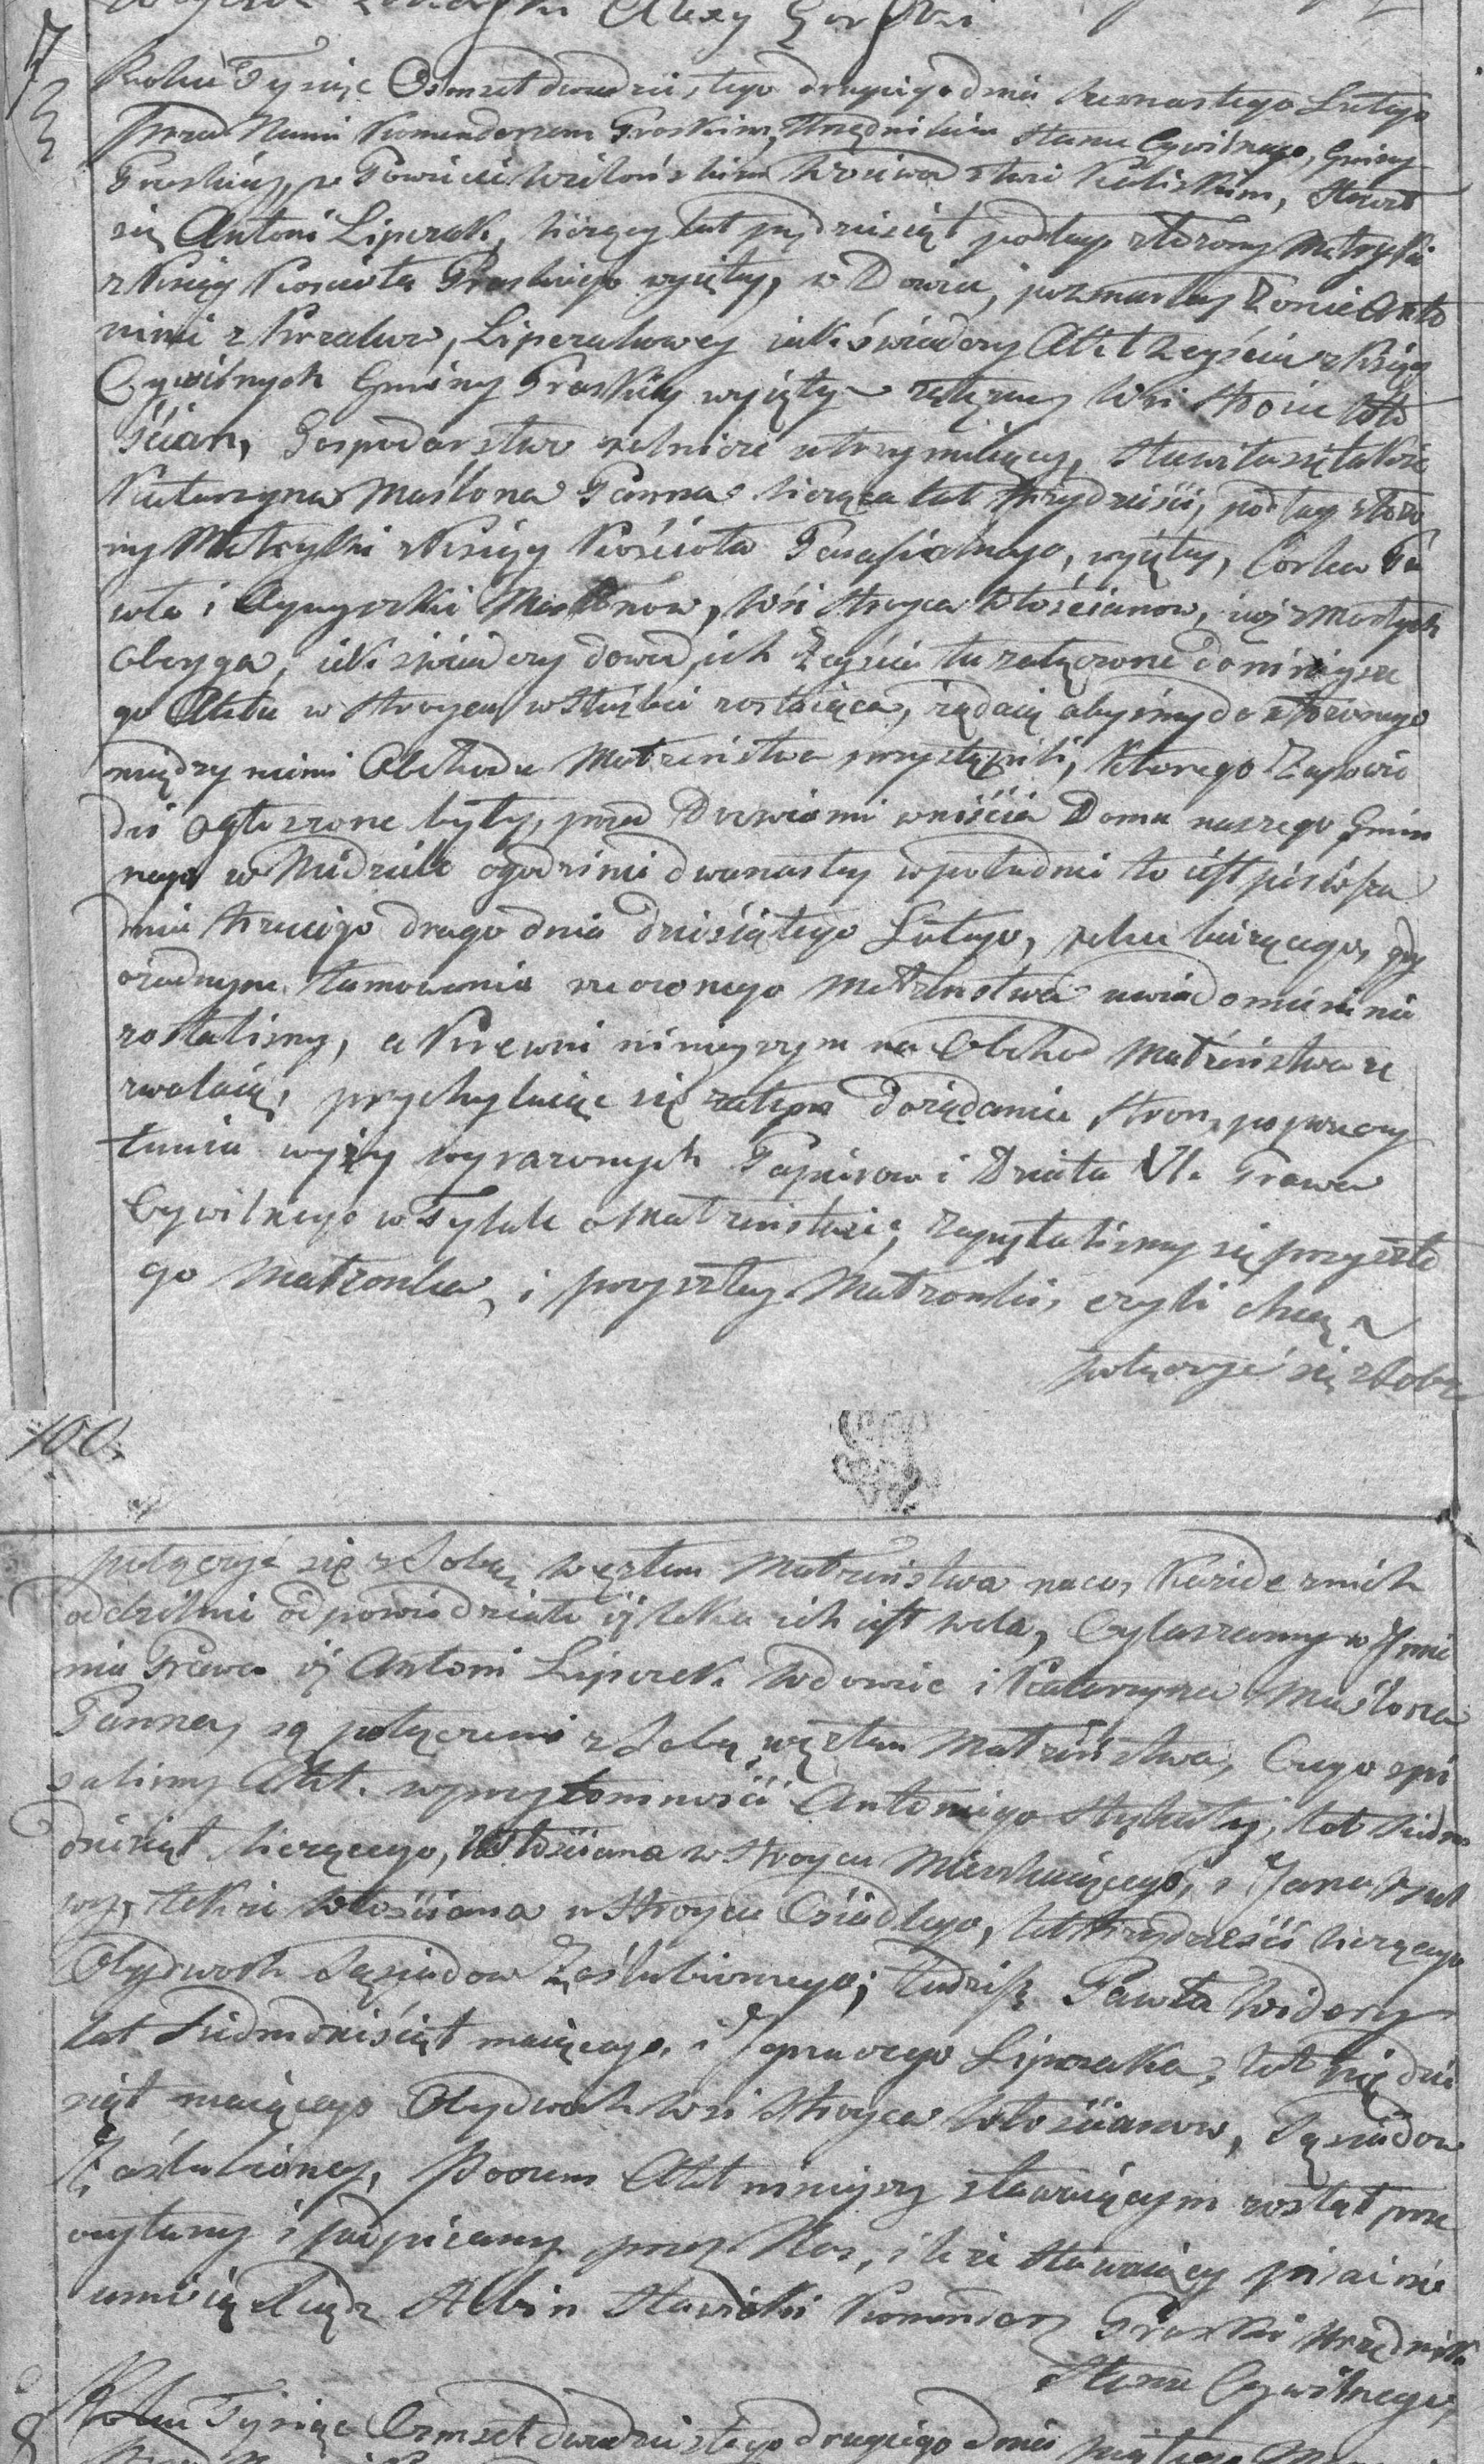 Alexy
7
Roku Tysiąc Osmset dwudziestego drugiego dnia trzynastego Lutego
przed Nami Komendarzem Praskim, Urzędnikiem Stanu Cywilnego, Gminy
Praskiey, w Powiecie Wieluńskim Woiewodztwie Kaliskim, stawił
się Antoni Liperak, liczący lat piędziesiąt podług złożoney Metryki
z Księgi Kościoła Praskiego wyiętey, w Dowiec, po zmarłey Żonie Anto
nini z, Liperakowey iak świadczy Akt Zeyścia z Xiąg
Cywilnych Gminy Praskiey wyięty załączney Wsi Stroiec Wło
ścian, Gospodarstwo rolnicze utrzymuiący, stawiła się także
Katarzyna Maślona Panna licząca lat trzydzieści, podług złożo
ney Metryki z Księgi Kościoła Parafialnego, wyiętey, Corka Pa
wła i Agnyszki Maślonow, Wsi Stroyca Włościanow, iuż zmarłych
oboyga, iak świadczy dowod ich Zeyścia tu załączone do ninieysze
go Aktu w Stroycu w służbie zostaiąca, żądaią abyśmy do ułożonego
między niemi Obchodu Małżeństwa przystąpili, którego Zapowie
dzi ogłoszone były, przed Drzwiami wniścia Domu naszego Gmin
nego w Niedziele o godzinie dwunastey w południe to iest pierwsza
dnia trzeciego druga dnia dziesiątego Lutego, roku bieżącego, gdy
o żadnym tamowaniu rzeczonego Małżeństwa uwiadomieni nie
zostaliśmy, a Krewni ninieyszym na Obchod Małżeństwa ze
zwalaią, przychylaiąc się zatym do żądania stron, po przeczy
taniu wyżey wyrażonych Papierow i Działu VI. Prawa
Cywilnego w Tytule o Małżeństwie, zapytaliśmy się przyszłe
go Małżonka, i przyszłey Małżonki, czyli chcą
połączyć się z sobą
100.
połączyć się z Sobą węzłem Małżeństwa na co, każde z nich
oddzielnie odpowiedziało iż taka ich iest wola, Ogłaszamy w Jmie
niu Prawa iż Antoni Liperek Wdowiec i Katarzyna Maślona
Panna, są połączeni z Sobą węzłem Małżeństwa, Czego spi
saliśmy Akt. w przytomności Antoniego, lat siedm
dziesiąt liczącego, Włościana w Stroycu Mieszkaiącego, i Jana
także Włościana w Stroycu Osiadłego, lat trzydzieści liczącego
Obydwoch Sąsiadow Zaślubionego; tudzież Pawła Widery
lat siedmdziesiąt maiącego, i Jgnacego Liperaka, lat piędzie
siąt maiącego Obydwoch wsi Stroyca Włościanow, Sąsiadow
Zaślubioney, Poczem Akt ninieyszy stawaiącym został prze
czytany i podpisany przez Nas, i iże stawaiący pisać nie
umieią Xiądz Albin Sławicki Komendarz Praski Urzędnik
Stanu Cywilnego,
8
Roku Tysiąc Osmset dwudziestego drugiego dnia